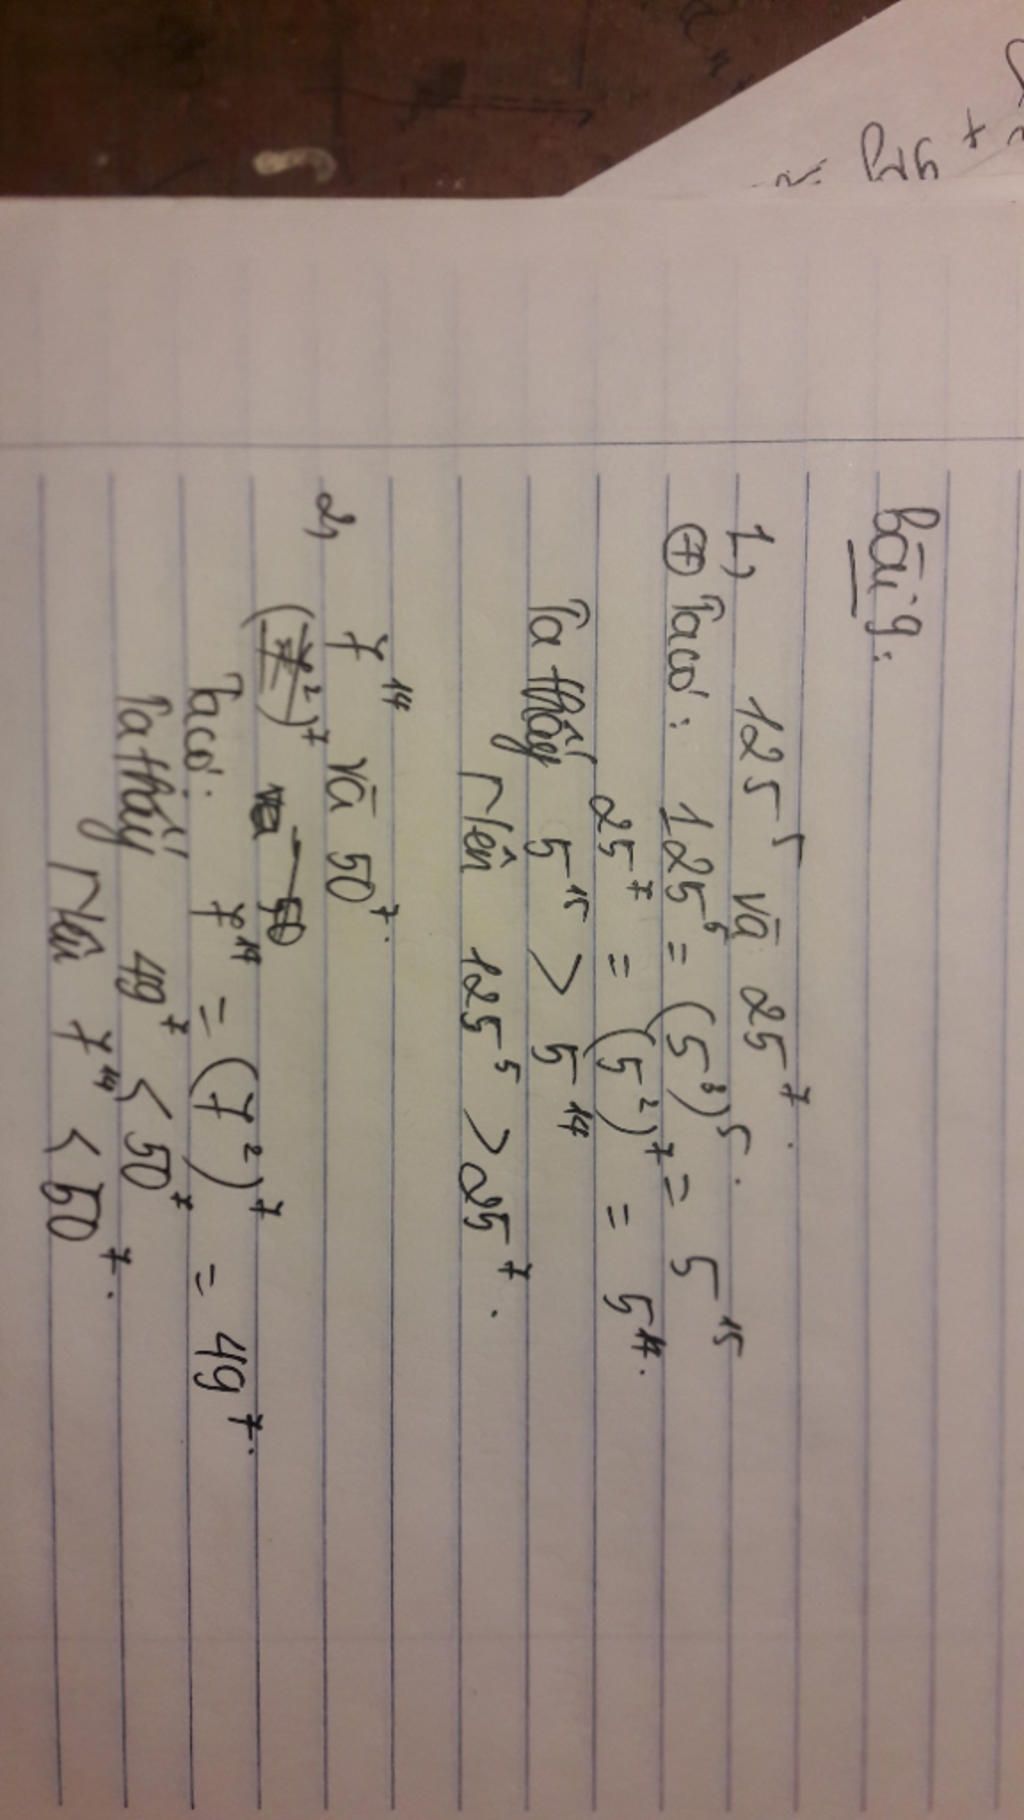 Bài 9:
1, 125⁵ và 25⁷.
⊕ Ta có: 125⁵ = (5³)⁵. = 5¹⁵
25⁷ = (5²)⁷ = 5¹⁴.
Ta thấy 5¹⁵ > 5¹⁴
Nên 125⁵ > 25⁷.
2, 7¹⁴ và 50⁷.
(7²)⁷ và 50
Ta có: 7¹⁴ = (7²)⁷ = 49⁷.
Ta thấy 49⁷ < 50⁷
Nên 7¹⁴ < 50⁷.